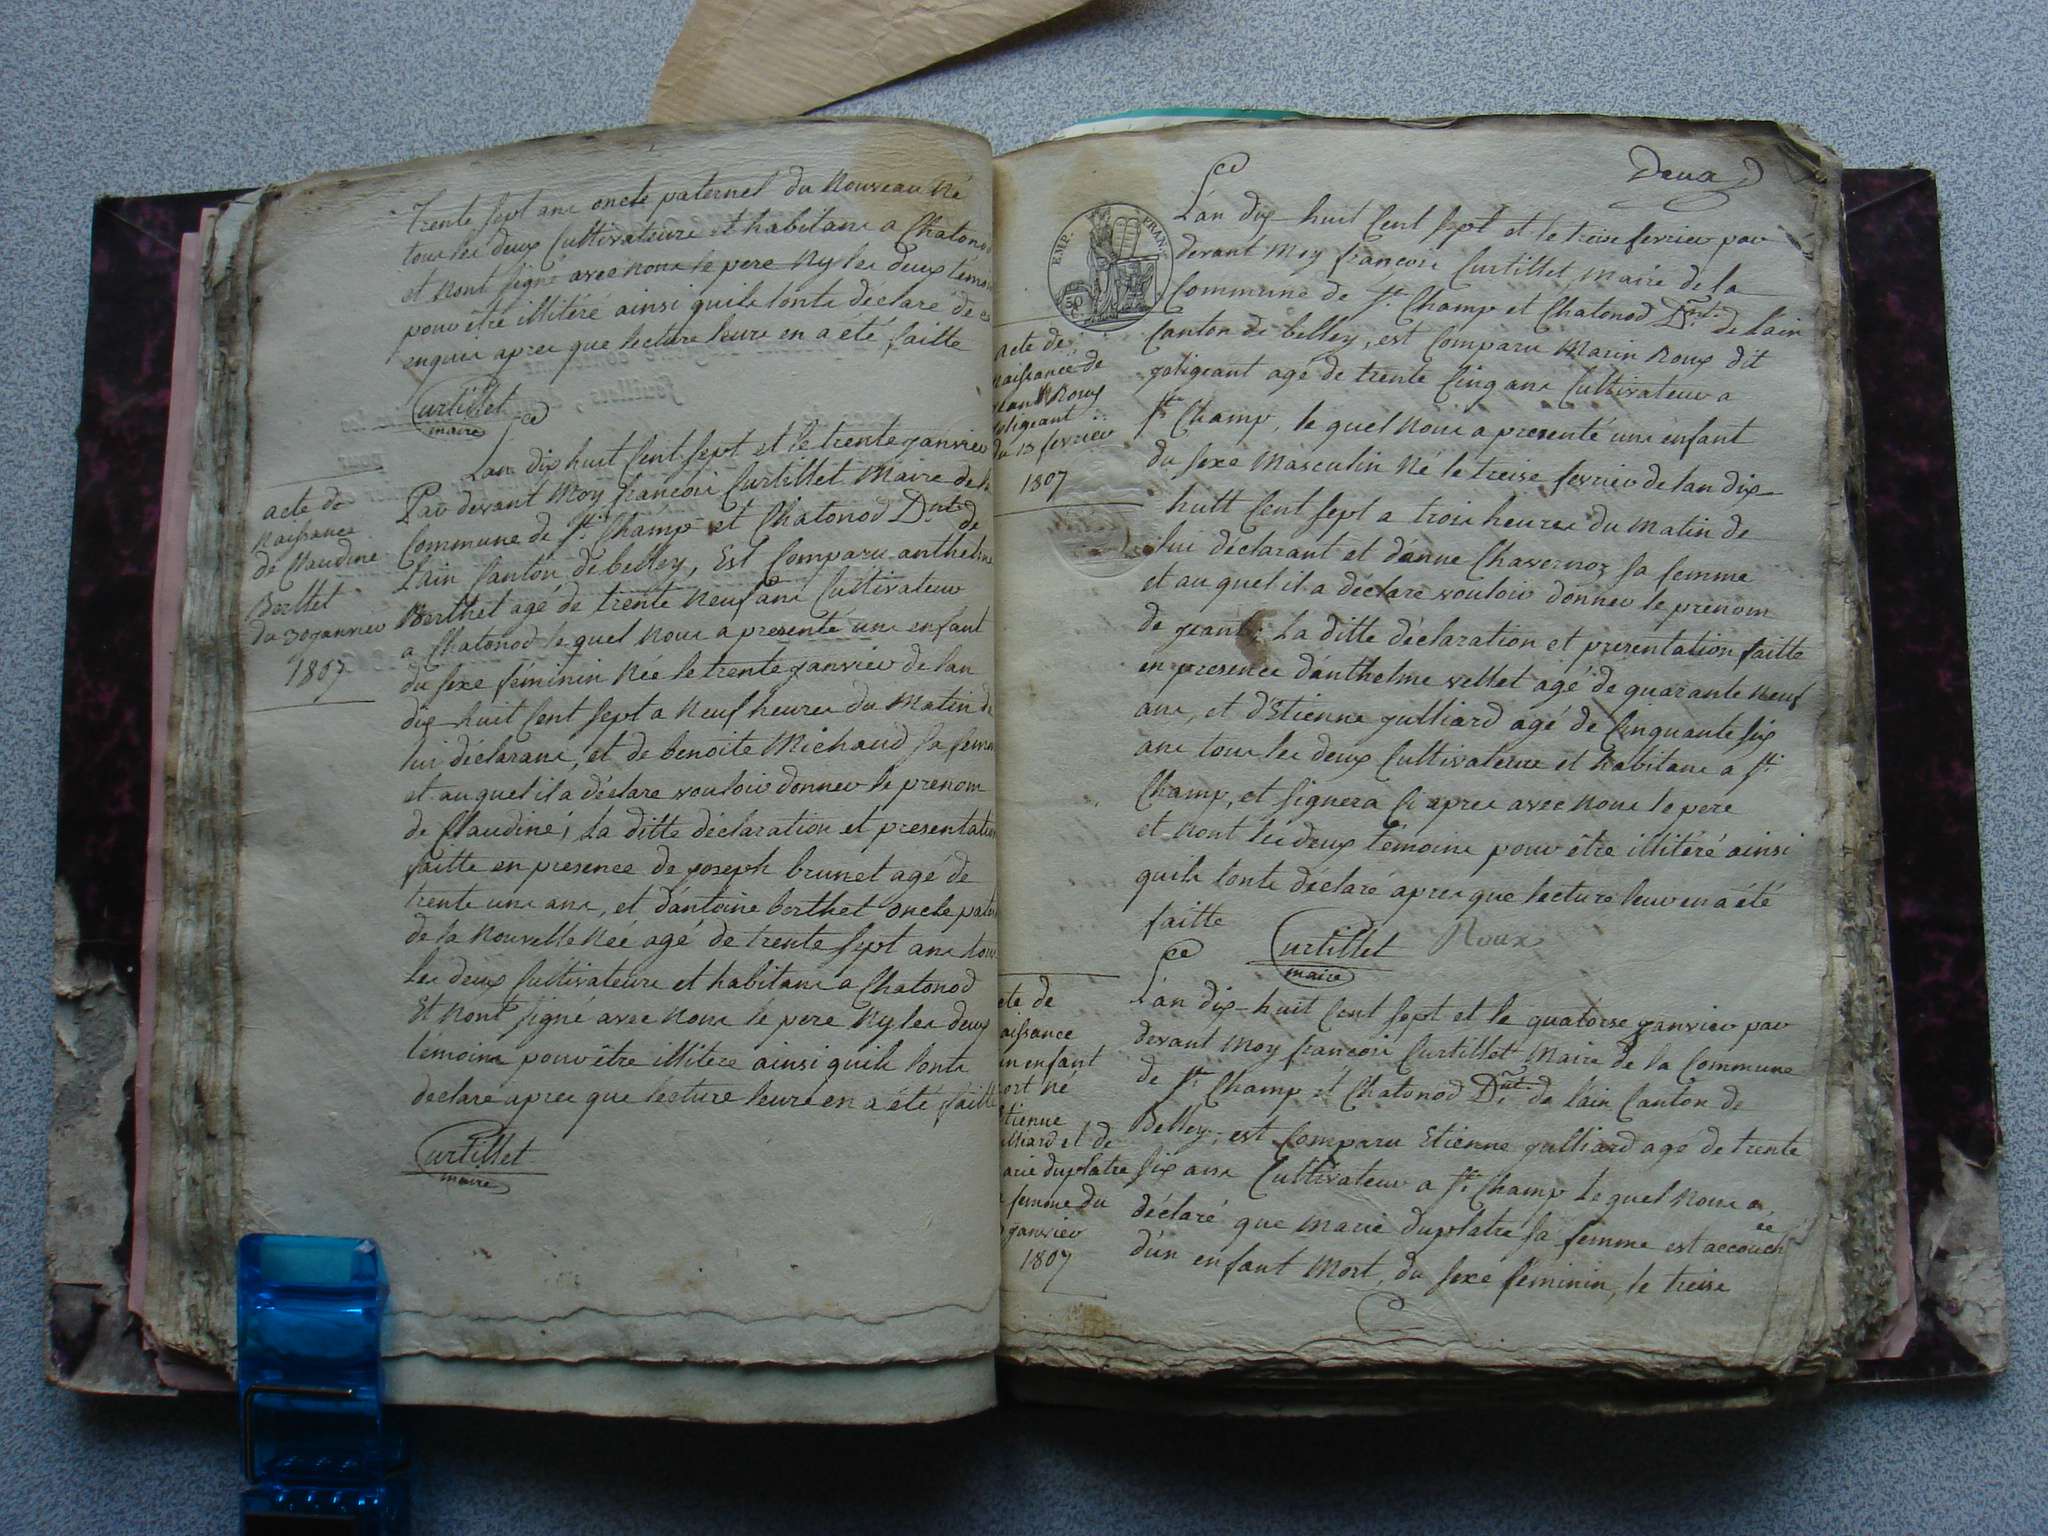 trente sept ans oncle paternel du nouveau Né
tous les deux Cultivateurs et habitans a Chatonod
et nont signé avec nous le pere Ny les deux témoi
pour être illitéré ainsi quils lonts déclaré de ce
enquis apres que lecture leurs en a été faitte
Curtillet
maire
Lan dix huit Cent sept et le trente janvier
Par devant Moy françois Curtillet Maire de la
Commune de St Champ et Chatonod Dmt de
Lain Canton de belley, Est Comparu anthelme
Berthet agé de trente neuf ans Cultivateur
a Chatonod le quel nous a presenté une enfant
du sexe féminin Née le trente janvier de lan
dix-huit Cent sept a neuf heures du Matin de
lui déclarans, et de benoite Michaud sa femme
et au quel il a déclare vouloir donner le prenom
de Claudine, La ditte déclaration et presentation
faitte en presence de joseph brunet agé de
trente une ans, et dantoine berthet oncle pater
de la nouvelle Née agé de trente sept ans tous
les deux Cultivateurs et habitans a Chatonod
Et nont signé avec nous le pere Ny les deux
temoins pour être illitere ainsi quils lonts
declaré apres que lecture leurs en a été faitte
Curtillet
maire
acte de
Naissance
de Claudine
Berthet
du 30 janvier
1807
Deux
EMP. FRAN.
50 C.
L'an dix-huit Cent sept et le treise fevrier par
devant Moy françois Curtillet, Maire de la
Commune de St Champ et Chatonod Dmt de Lain
Canton de belley, est Comparu Marin Roux dit
joligeant agé de trente Cinq ans Cultivateur a
St Champ, le quel nous a presenté une enfant
du sexe Masculin Né le treise fevrier de lan dix
huit Cent sept a trois heures du Matin de
lui déclarant et d'anne Chavernoz sa femme
et au quel il a déclare vouloir donner le prenom
de jean; La ditte déclaration et presentation faitte
en presence d'anthelme vellet agé de quarante neuf
ans, et d'Etienne julliard agé de Cinquante six
ans tous les deux Cultivateurs et habitans a St
Champ, et signera Ci apres avec nous le pere
et nont les deux témoins pour être illitéré ainsi
quils lonts déclaré apres que lecture leur en a été
faitte
Curtillet Roux
maire
acte de
naissance de
jean Roux
joligeant
du 13 fevrier
1807
L'an dix-huit Cent sept et le quatorse janvier par
devant Moy françois Curtillet Maire de la Commune
de St Champ et Chatonod Dmt de Lain Canton de
Belley, est Comparu Etienne julliard agé de trente
six ans Cultivateur a St Champ Le quel nous a
déclaré que Marie duplatre sa femme est accouchée
d'un enfant Mort, du sexe féminin, le treise
cte de
aissance
un enfant
ort né
Etienne
lliard et de
arie duplatre
a femme du
janvier
1807